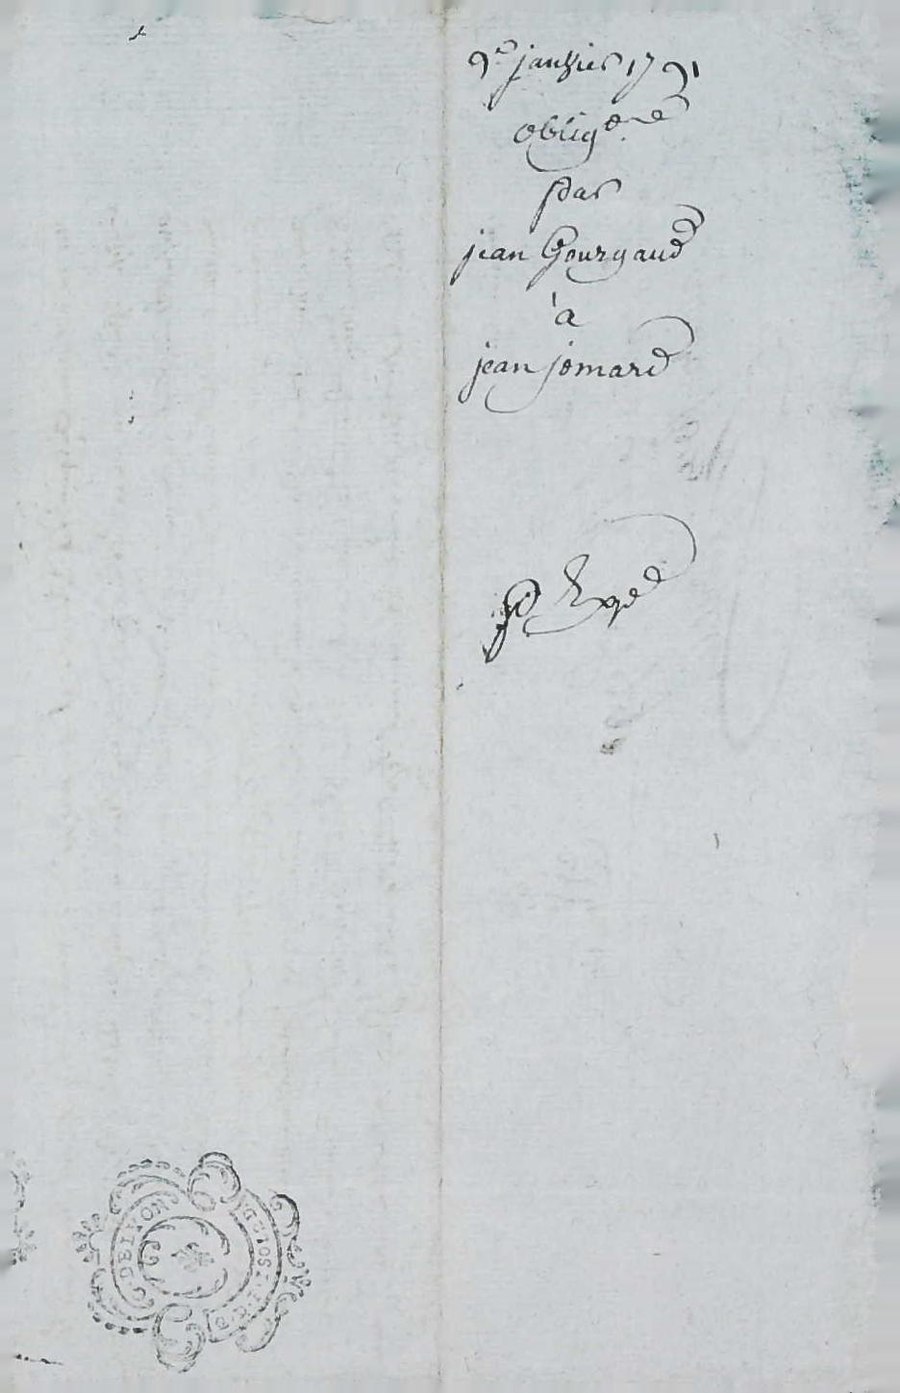 9e janvier 1791
obligon
par
jean Gourgaud
à
jean jomard
G. DE LYON